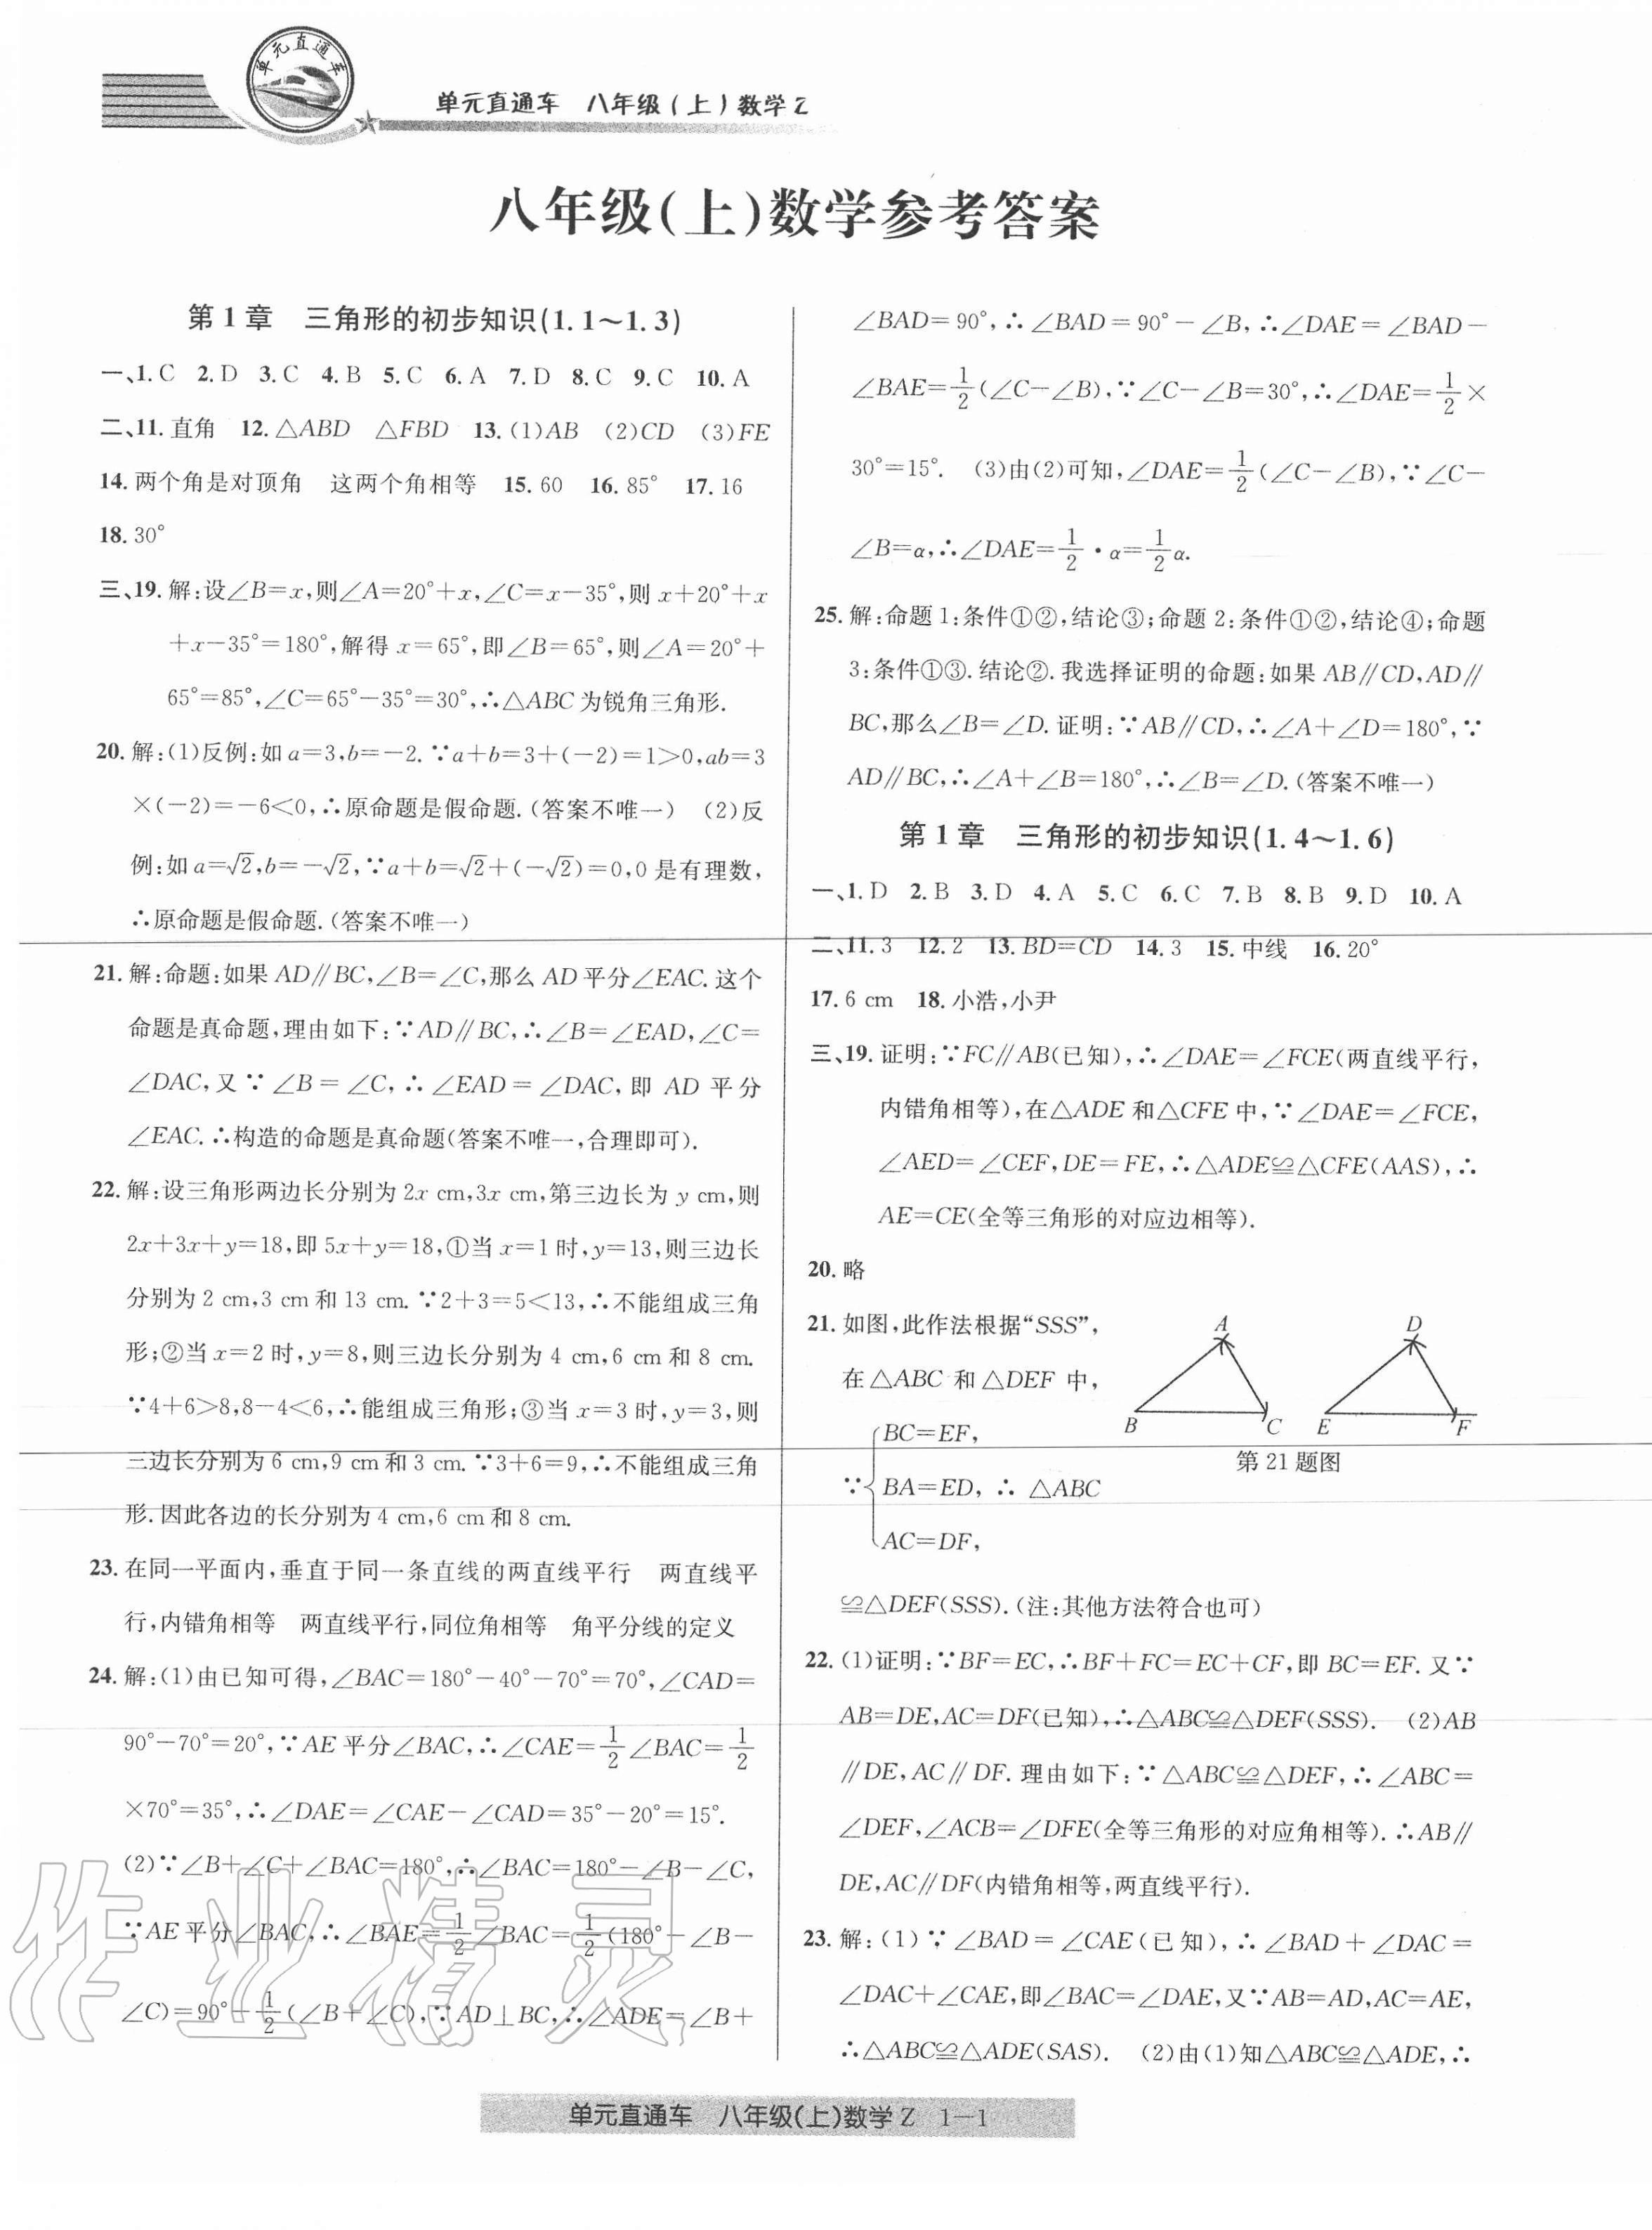 单元直通车
单元直通车 八年级(上)数学Z
八年级(上)数学参考答案
第1章 三角形的初步知识(1.1～1.3)
一、1.C 2.D 3.C 4.B 5.C 6.A 7.D 8.C 9.C 10.A
二、11.直角 12.△ABD △FBD 13.(1)AB (2)CD (3)FE
14.两个角是对顶角 这两个角相等 15.60 16.85° 17.16
18.30°
三、19.解:设∠B=x,则∠A=20°+x,∠C=x−35°,则x+20°+x
+x−35°=180°,解得x=65°,即∠B=65°,则∠A=20°+
65°=85°,∠C=65°−35°=30°,∴△ABC为锐角三角形.
20.解:(1)反例:如a=3,b=−2.∵a+b=3+(−2)=1>0,ab=3
×(−2)=−6<0,∴原命题是假命题.(答案不唯一) (2)反
例:如a=√2,b=−√2,∵a+b=√2+(−√2)=0,0是有理数,
∴原命题是假命题.(答案不唯一)
21.解:命题:如果AD∥BC,∠B=∠C,那么AD平分∠EAC.这个
命题是真命题,理由如下:∵AD∥BC,∴∠B=∠EAD,∠C=
∠DAC,又∵∠B=∠C,∴∠EAD=∠DAC,即AD平分
∠EAC.∴构造的命题是真命题(答案不唯一,合理即可).
22.解:设三角形两边长分别为2x cm,3x cm,第三边长为y cm,则
2x+3x+y=18,即5x+y=18,①当x=1时,y=13,则三边长
分别为2 cm,3 cm和13 cm.∵2+3=5<13,∴不能组成三角
形;②当x=2时,y=8,则三边长分别为4 cm,6 cm和8 cm.
∵4+6>8,8−4<6,∴能组成三角形;③当x=3时,y=3,则
三边长分别为6 cm,9 cm和3 cm.∵3+6=9,∴不能组成三角
形.因此各边的长分别为4 cm,6 cm和8 cm.
23.在同一平面内,垂直于同一条直线的两直线平行 两直线平
行,内错角相等 两直线平行,同位角相等 角平分线的定义
24.解:(1)由已知可得,∠BAC=180°−40°−70°=70°,∠CAD=
90°−70°=20°,∵AE平分∠BAC,∴∠CAE=1/2∠BAC=1/2
×70°=35°,∴∠DAE=∠CAE−∠CAD=35°−20°=15°.
(2)∵∠B+∠C+∠BAC=180°,∴∠BAC=180°−∠B−∠C,
∵AE平分∠BAC,∴∠BAE=1/2∠BAC=1/2(180°−∠B−
∠C)=90°−1/2(∠B+∠C),∵AD⊥BC,∴∠ADE=∠B+
∠BAD=90°,∴∠BAD=90°−∠B,∴∠DAE=∠BAD−
∠BAE=1/2(∠C−∠B),∵∠C−∠B=30°,∴∠DAE=1/2×
30°=15°. (3)由(2)可知,∠DAE=1/2(∠C−∠B),∵∠C−
∠B=α,∴∠DAE=1/2·α=1/2α.
25.解:命题1:条件①②,结论③;命题2:条件①②,结论④;命题
3:条件①③.结论②.我选择证明的命题:如果AB∥CD,AD∥
BC,那么∠B=∠D.证明:∵AB∥CD,∴∠A+∠D=180°,∵
AD∥BC,∴∠A+∠B=180°,∴∠B=∠D.(答案不唯一)
第1章 三角形的初步知识(1.4～1.6)
一、1.D 2.B 3.D 4.A 5.C 6.C 7.B 8.B 9.D 10.A
二、11.3 12.2 13.BD=CD 14.3 15.中线 16.20°
17.6 cm 18.小浩,小尹
三、19.证明:∵FC∥AB(已知),∴∠DAE=∠FCE(两直线平行,
内错角相等),在△ADE和△CFE中,∵∠DAE=∠FCE,
∠AED=∠CEF,DE=FE,∴△ADE≌△CFE(AAS),∴
AE=CE(全等三角形的对应边相等).
20.略
21.如图,此作法根据“SSS”,
在△ABC和△DEF中,
BC=EF,
∵{BA=ED,∴△ABC
AC=DF,
A
B
C
D
E
F
第21题图
≌△DEF(SSS).(注:其他方法符合也可)
22.(1)证明:∵BF=EC,∴BF+FC=EC+CF,即BC=EF.又∵
AB=DE,AC=DF(已知),∴△ABC≌△DEF(SSS). (2)AB
∥DE,AC∥DF.理由如下:∵△ABC≌△DEF,∴∠ABC=
∠DEF,∠ACB=∠DFE(全等三角形的对应角相等).∴AB∥
DE,AC∥DF(内错角相等,两直线平行).
23.解:(1)∵∠BAD=∠CAE(已知),∴∠BAD+∠DAC=
∠DAC+∠CAE,即∠BAC=∠DAE,又∵AB=AD,AC=AE,
∴△ABC≌△ADE(SAS). (2)由(1)知△ABC≌△ADE,∴
作业精灵
单元直通车 八年级(上)数学Z 1—1